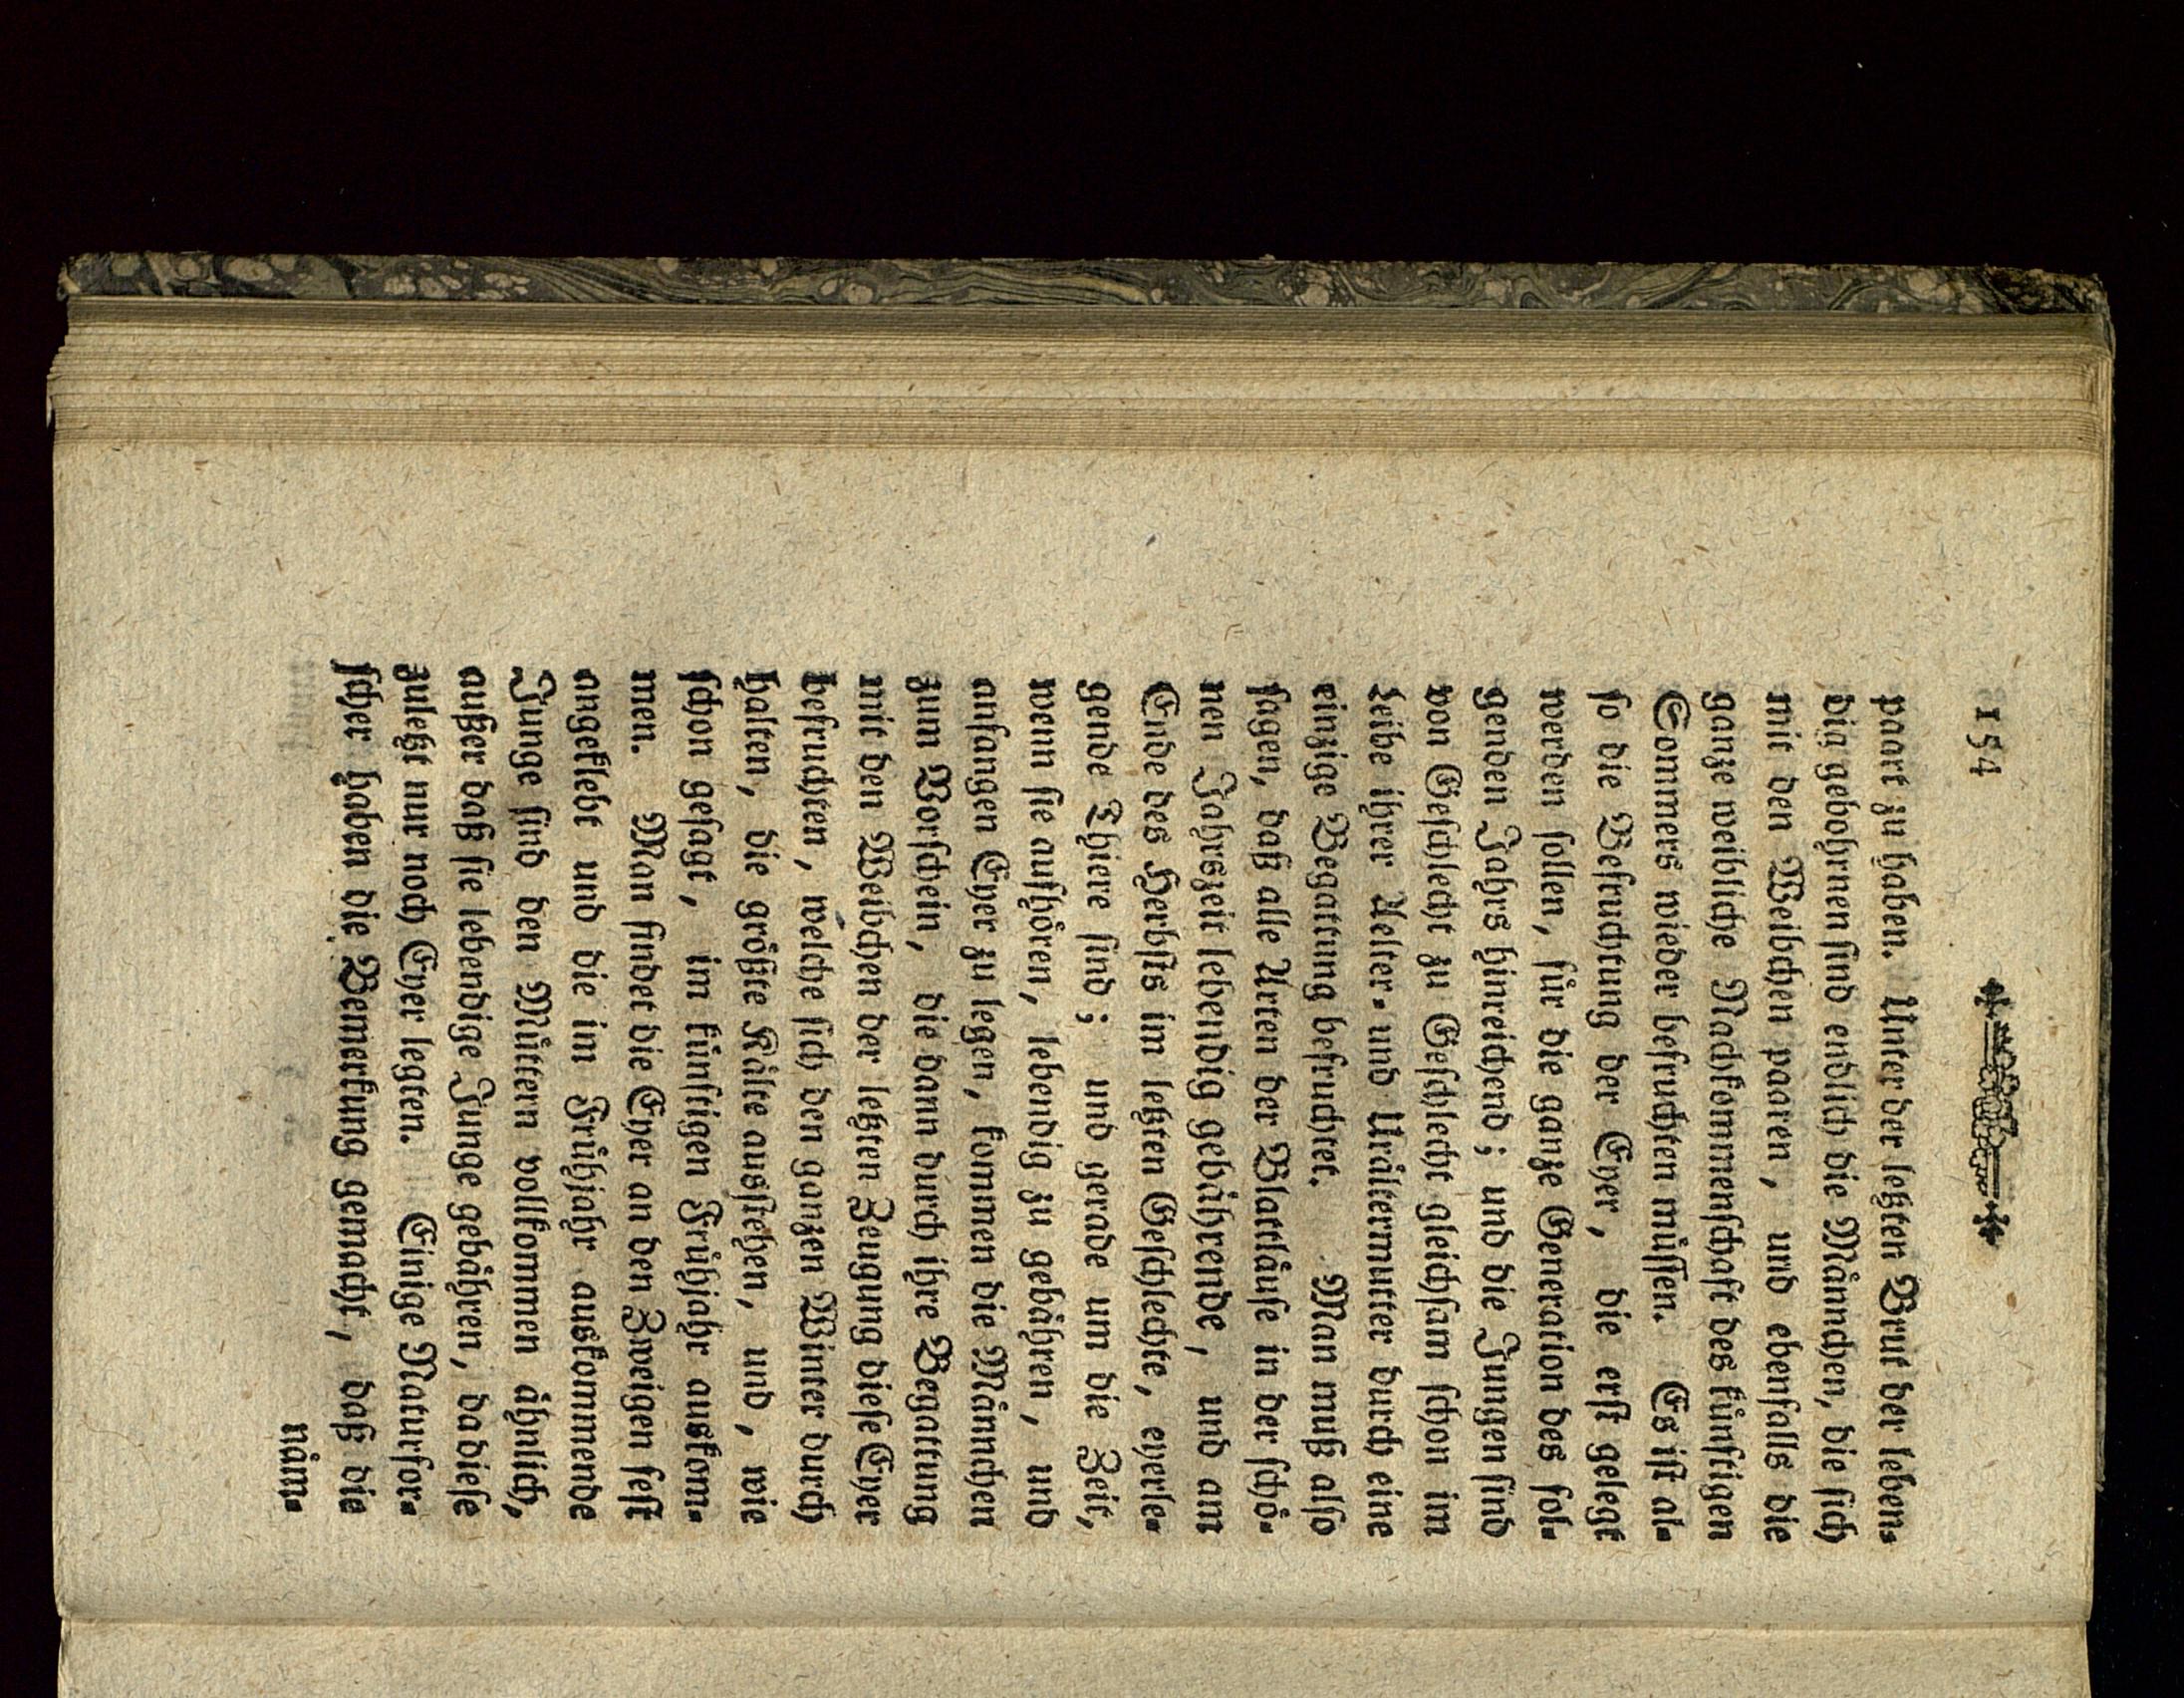 154
paart zu haben. Unter der letzten Brut der leben-
dig gebohrnen sind endlich die Männchen, die sich
mit den Weibchen paaren, und ebenfalls die
ganze weibliche Nachkommenschaft des künftigen
Sommers wieder befruchten müssen. Es ist al-
so die Befruchtung der Eyer, die erst gelegt
werden sollen, für die ganze Generation des fol-
genden Jahrs hinreichend; und die Jungen sind
von Geschlecht zu Geschlecht gleichsam schon im
Leibe ihrer Aelter- und Urältermutter durch eine
einzige Begattung befruchtet. Man muß also
sagen, daß alle Arten der Blattläuse in der schö-
nen Jahrszeit lebendig gebährende, und am
Ende des Herbsts im letzten Geschlechte, eyerle-
gende Thiere sind; und gerade um die Zeit,
wenn sie aufhören, lebendig zu gebähren, und
anfangen Eyer zu legen, kommen die Männchen
zum Vorschein, die dann durch ihre Begattung
mit den Weibchen der letzten Zeugung diese Eyer
befruchten, welche sich den ganzen Winter durch
halten, die größte Kälte ausstehen, und, wie
schon gesagt, im künftigen Frühjahr auskom-
men. Man findet die Eyer an den Zweigen fest
angeklebt und die im Frühjahr auskommende
Junge sind den Müttern vollkommen ähnlich,
außer daß sie lebendige Junge gebähren, da diese
zuletzt nur noch Eyer legten. Einige Naturfor-
scher haben die Bemerkung gemacht, daß die
näm-